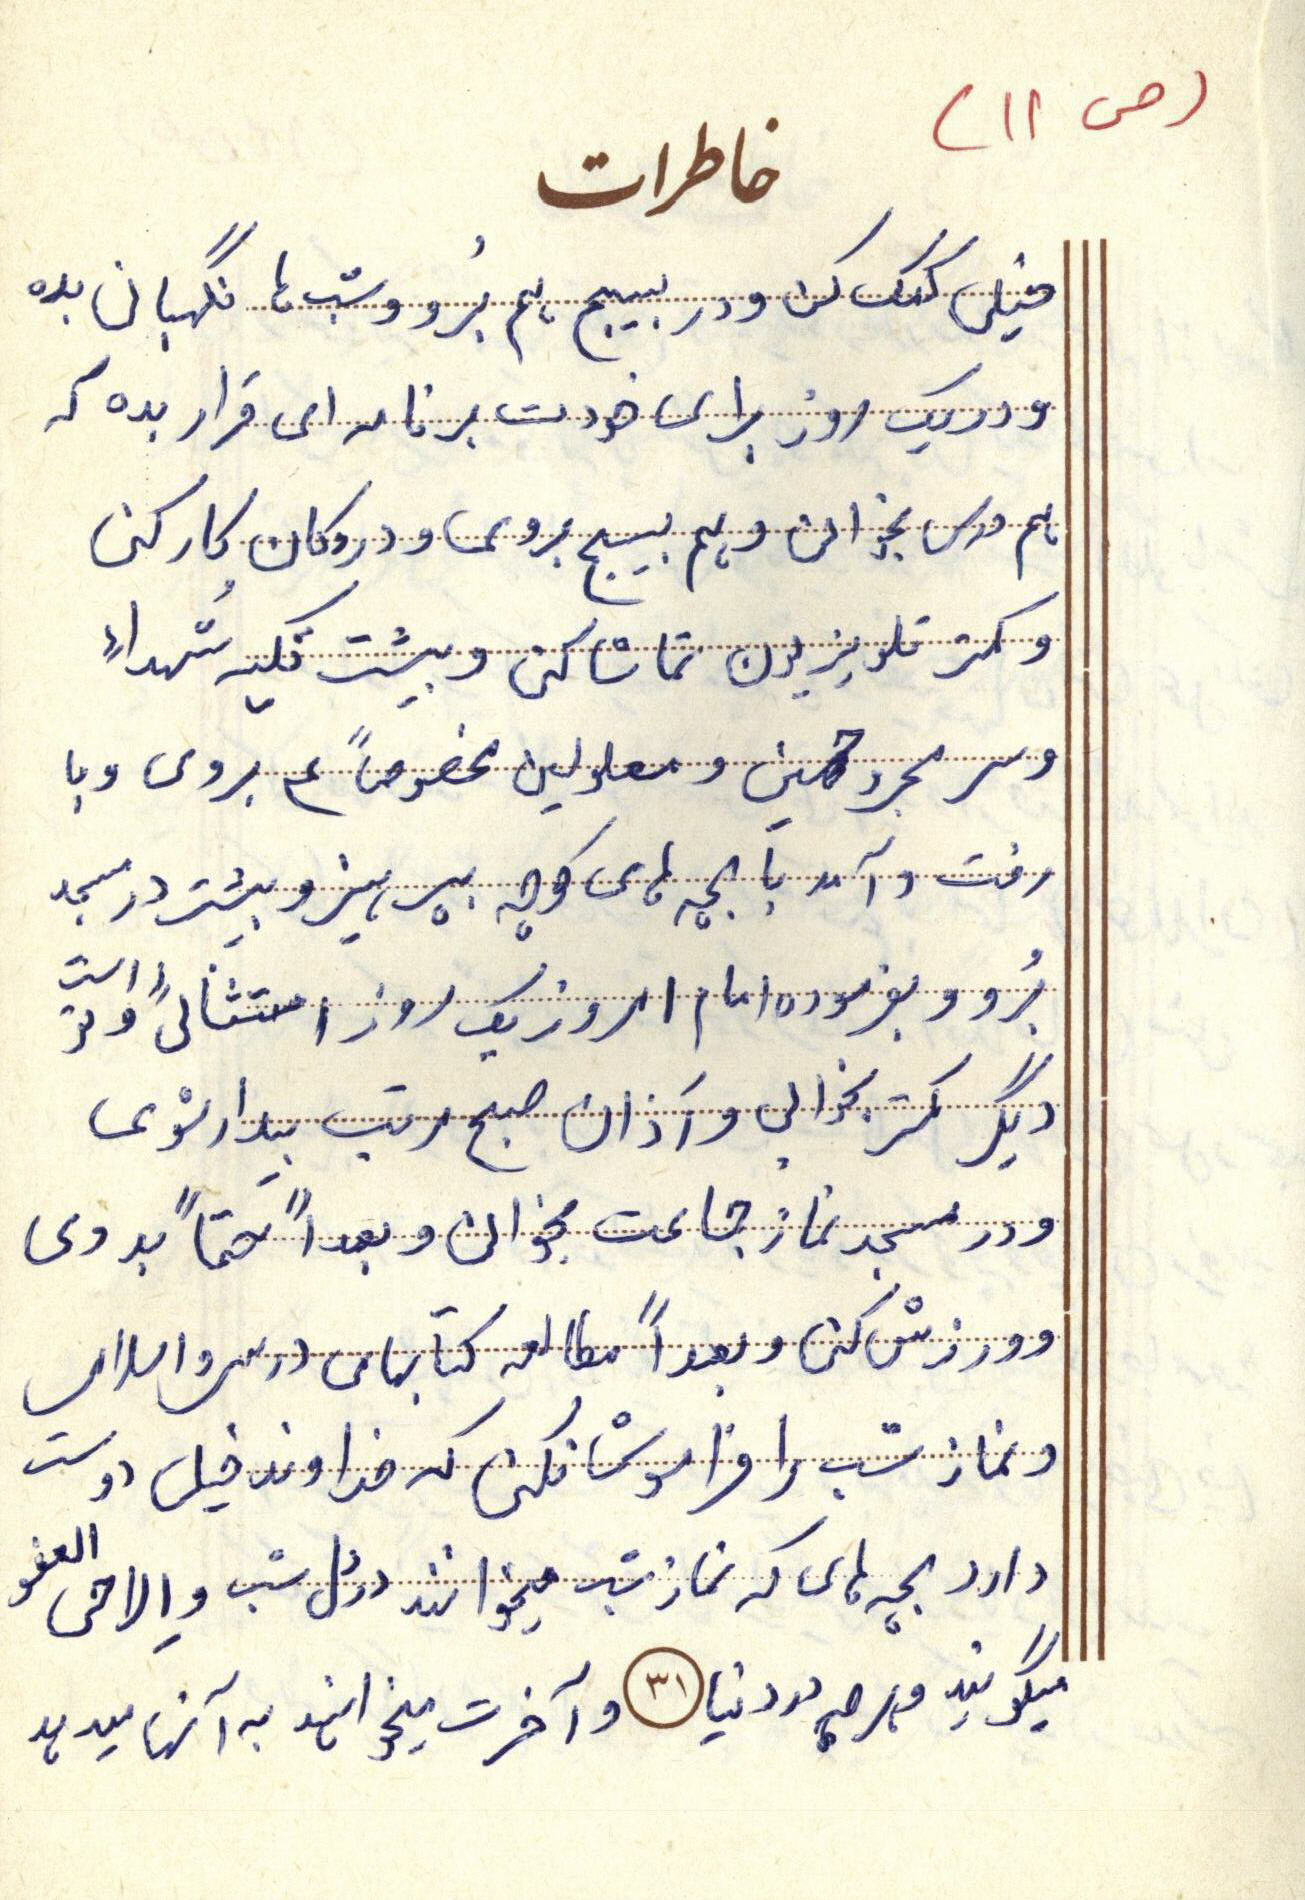 (ص ۱۱)
خاطرات
خیلی کمک کن و در بسیج هم بُرو و شب ها نگهبانی بده
و در یک روز برای خودت برنامه ای قرار بده که
هم درس بخوانی و هم بسیج بروی و در دکان کار کنی
و کمتر تلویزیون تماشا کنی و بیشتر تکیه شُهداء
و سر مجروحین و معلولین مخصوصاً بروی و با
رفت و آمد با بچه های کوچه بپرهیز و بیشتر در مسجد
بُرو و بفرموده امام امروز یک روز استثنائی است و تو
دیگر کمتر بخوابی و آذان صبح مرتب بیدار شوی
و در مسجد نماز جماعت بخوانی و بعداً حتماً بدوی
و ورزش کنی و بعداً مطالعه کتابهای درسی و اسلامی
و نماز شب را فراموش نکنی که خداوند خیلی دوست
دارد بچه های که نماز شب میخوانند در دل شب و الاهی العفو
میگویند و هر چه در دنیا و آخرت میخواهند به آنها میدهد
۳۱